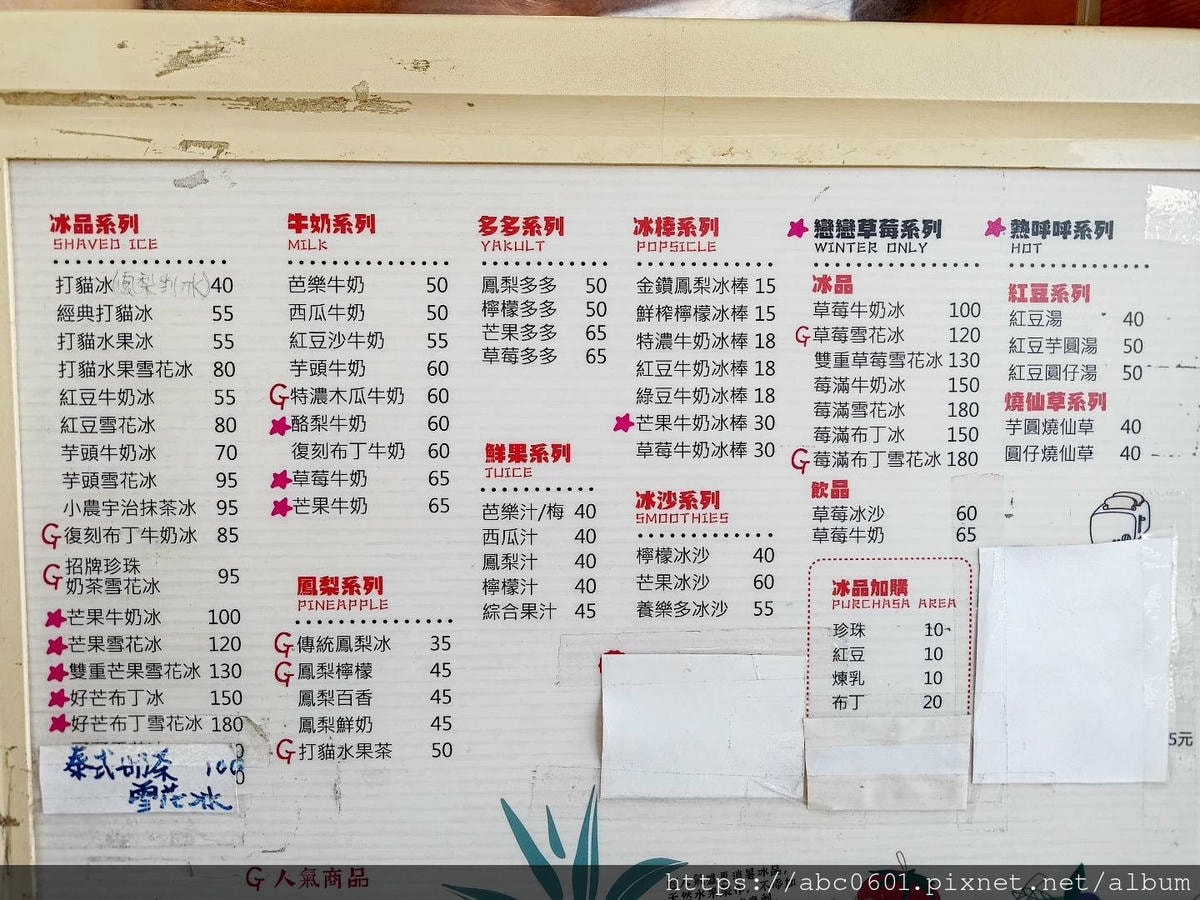 冰品系列
SHAVED ICE
打貓冰(鳳梨剉冰) 40
經典打貓冰 55
打貓水果冰 55
打貓水果雪花冰 80
紅豆牛奶冰 55
紅豆雪花冰 80
芋頭牛奶冰 70
芋頭雪花冰 95
小農宇治抹茶冰 95
復刻布丁牛奶冰 85
招牌珍珠
奶茶雪花冰 95
芒果牛奶冰 100
芒果雪花冰 120
雙重芒果雪花冰 130
好芒布丁冰 150
好芒布丁雪花冰 180
泰式奶茶 100
雪花冰
牛奶系列
MILK
芭樂牛奶 50
西瓜牛奶 50
紅豆沙牛奶 55
芋頭牛奶 60
G 特濃木瓜牛奶 60
酪梨牛奶 60
復刻布丁牛奶 60
草莓牛奶 65
芒果牛奶 65
鳳梨系列
PINEAPPLE
G 傳統鳳梨冰 35
G 鳳梨檸檬 45
鳳梨百香 45
鳳梨鮮奶 45
G 打貓水果茶 50
多多系列
YAKULT
鳳梨多多 50
檸檬多多 50
芒果多多 65
草莓多多 65
鮮果系列
JUICE
芭樂汁/梅 40
西瓜汁 40
鳳梨汁 40
檸檬汁 40
綜合果汁 45
冰棒系列
POPSICLE
金鑽鳳梨冰棒 15
鮮榨檸檬冰棒 15
特濃牛奶冰棒 18
紅豆牛奶冰棒 18
綠豆牛奶冰棒 18
芒果牛奶冰棒 30
草莓牛奶冰棒 30
冰沙系列
SMOOTHIES
檸檬冰沙 40
芒果冰沙 60
養樂多冰沙 55
戀戀草莓系列
WINTER ONLY
冰品
草莓牛奶冰 100
G 草莓雪花冰 120
雙重草莓雪花冰 130
莓滿牛奶冰 150
莓滿雪花冰 180
莓滿布丁冰 150
G 莓滿布丁雪花冰 180
飲品
草莓冰沙 60
草莓牛奶 65
冰品加購
PURCHASA AREA
珍珠 10
紅豆 10
煉乳 10
布丁 20
熱呼呼系列
HOT
紅豆系列
紅豆湯 40
紅豆芋圓湯 50
紅豆圓仔湯 50
燒仙草系列
芋圓燒仙草 40
圓仔燒仙草 40
5元
G 人氣商品
https://abc0601.pixnet.net/album